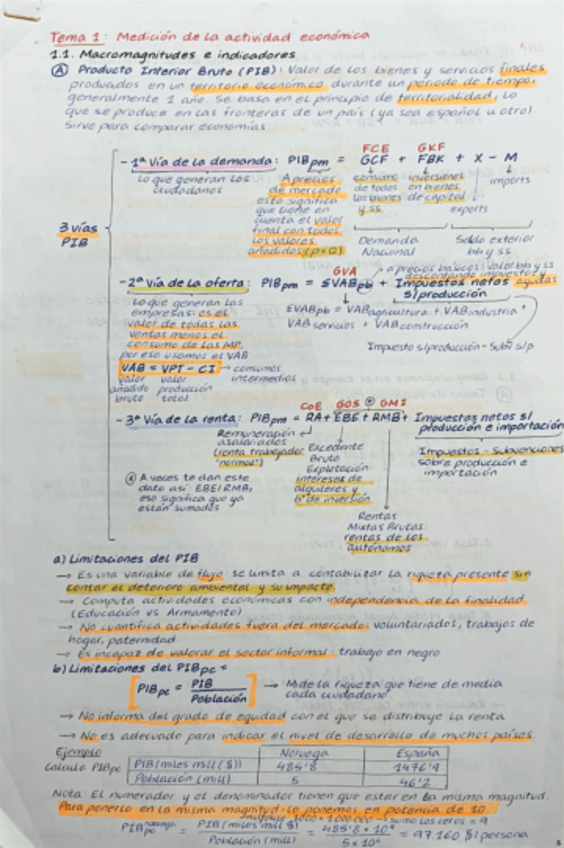 Tema 1: Medición de la actividad económica
1.1. Macromagnitudes e indicadores
Ⓐ Producto Interior Bruto (PIB): Valor de los bienes y servicios finales
producidos en un territorio económico durante un periodo de tiempo,
generalmente 1 año. Se basa en el principio de territorialidad, lo
que se produce en las fronteras de un país (ya sea español u otro)
Sirve para comparar economías
3 vías
PIB
FCE GKF
- 1ª Vía de la demanda: PIBpm = GCF + FBK + X - M
lo que generan los
ciudadanos
A precios
de mercado
esto significa
que tiene en
cuenta el valor
final con todos
los valores
añadidos (p×Q)
consumo
de todos
los bienes
y ss.
inversiones
en bienes
de capital
exports
imports
Demanda
Nacional
Saldo exterior
bb y ss
GVA
a precios básicos: valor bb y ss
descontando impuestos y
ayudas
- 2ª Vía de la oferta: PIBpm = ΣVABpb + Impuestos netos
s/producción
Lo que generan las
empresas: es el
valor de todas las
ventas menos el
consumo de las MP,
por eso usamos el VAB
ΣVABpb = VABagricultura + VABindustria +
VABservicios + VABconstrucción
Impuesto s/producción - Subv s/p
VAB = VPT - CI → consumos
intermedios
valor
añadido
bruto
valor
producción
total
CoE GOS ⊕ GMI
- 3ª Vía de la renta: PIBpm = RA + EBE + RMB + Impuestos netos s/
producción e importación
Remuneración
asalariados
(renta trabajador
"normal")
Excedente
Bruto
Explotación
intereses de
alquileres y
bº de inversión
Impuestos - Subvenciones
sobre producción e
importación
A veces te dan este
dato así: EBE/RMB,
eso significa que ya
están sumados
Rentas
Mixtas Brutas
rentas de los
autónomos
a) Limitaciones del PIB
→ Es una variable de flujo: se limita a contabilizar la riqueza presente sin
contar el deterioro ambiental y su impacto
→ Computa actividades económicas con independencia de la finalidad
(Educación vs Armamento)
→ No cuantifica actividades fuera del mercado: voluntariados, trabajos de
hogar, paternidad
→ Es incapaz de valorar el sector informal: trabajo en negro
b) Limitaciones del PIBpc =
[PIBpc = PIB / Población] → Mide la riqueza que tiene de media
cada ciudadano
→ No informa del grado de equidad con el que se distribuye la renta
→ No es adecuado para indicar el nivel de desarrollo de muchos países
Ejemplo
Noruega España
Calcula PIBpc PIB (miles mill ($)) 485'8 1476'9
Población (mill) 5 46'2
Nota: El numerador y el denominador tienen que estar en la misma magnitud.
Para ponerlo en la misma magnitud, lo ponemos en potencia de 10
1000 × 1000000 → sumo los ceros = 9
PIBpc noruega = PIB (miles mill $) / Población (mill) = 485'8 × 10⁹ / 5 × 10⁶ = 97.160 $/persona